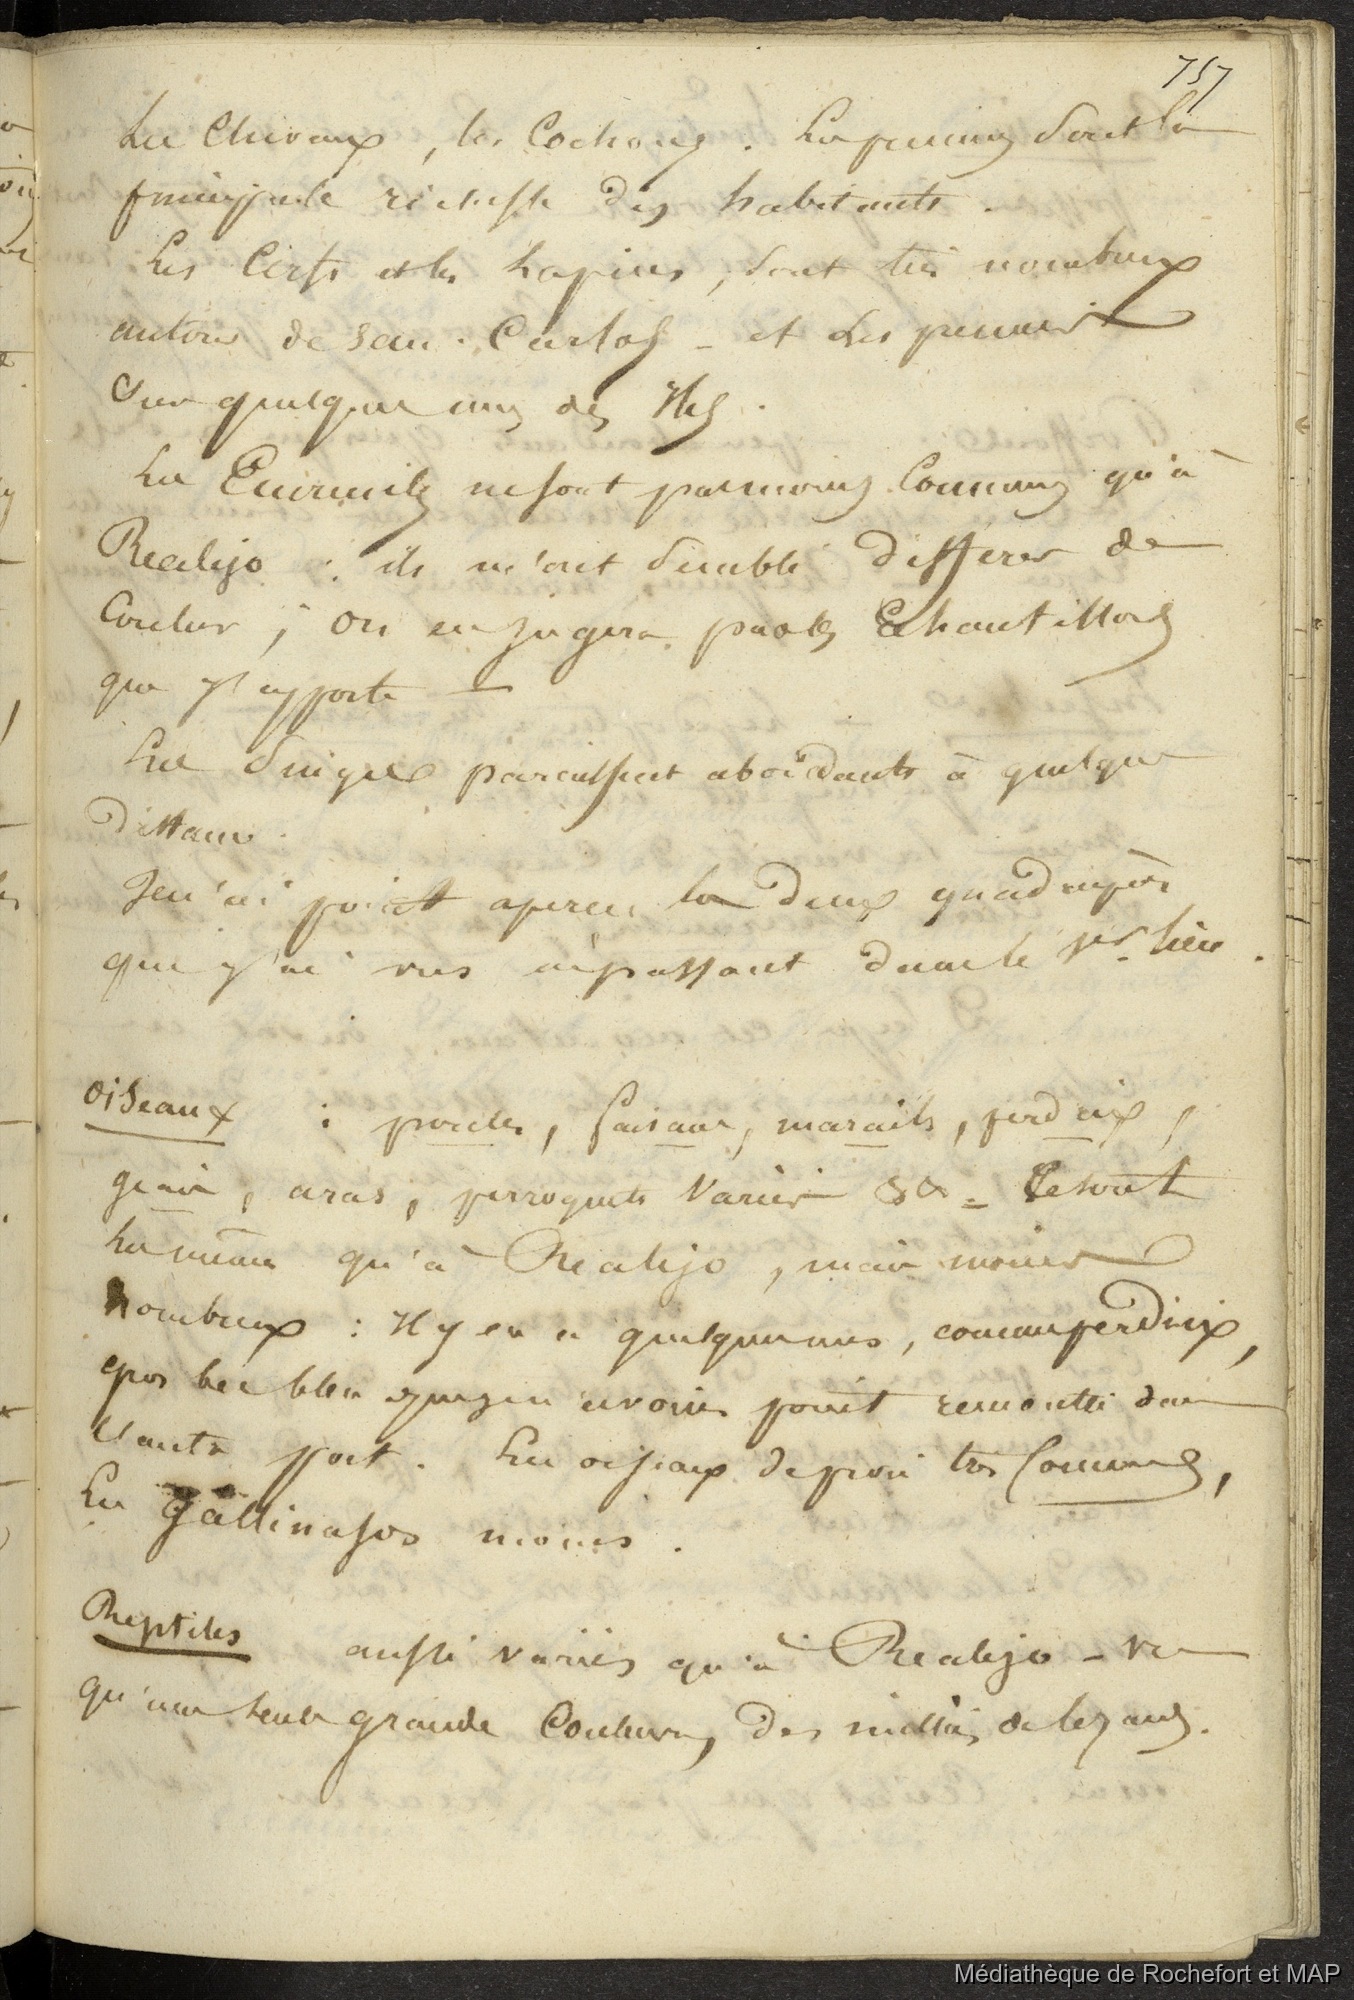 757
Les Chevaux, les Cochons. Les premiers sont la
principale richesse des habitants.
Les Cerfs et les Lapins, sont très nombreux
autour de San-Carlos - et les premiers
sur quelques unes des Iles.
Les Ecureuils ne sont pas moins Communs qu'à
Realejo : ils m'ont semblé différer de
Couleur ; on en jugera par les Echantillons
que j'apporte —
Les Singes paraissent abondants à quelque
distance.
Je n'ai point aperçu les deux quadrupèdes
que j'ai vus dans le 1er lieu.
Oiseaux : poules, faisans, marails, perdrix,
geais, aras, perroquets variés &a = Ce sont
les mêmes qu'à Realejo, mais moins
nombreux : Il y en a quelques uns, comme perdrix,
gros bec bleu que je n'avais point remontré dans
l'autre port. Les oiseaux de proie très Communs,
Les Gallinasos moins.
Reptiles aussi variés qu'à Realejo - vu
qu'une seule grande Couleuvre, des milliers de lezards.
Médiathèque de Rochefort et MAP